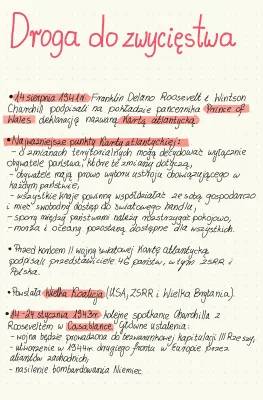 Droga do zwycięstwa
• 14 sierpnia 1941r. Franklin Delano Roosevelt i Wintson
Churchill podpisali na pokładzie pancernika Prince of
Wales deklarację nazwaną Kartą atlantycką
• Najważniejsze punkty Karty atlantyckiej:
- o zmianach terytorialnych mogą decydować wyłącznie
obywatele państwa, które te zmiany dotyczą,
- obywatele mają prawo wyboru ustroju obowiązującego w
każdym państwie,
- wszystkie kraje powinny współdziałać ze sobą gospodarczo
i mieć swobodny dostęp do światowego handlu,
- spory między państwami należy rozstrzygać pokojowo,
- morza i oceany pozostaną dostępne dla wszystkich.
• Przed końcem II wojny światowej Kartę atlantycką
podpisali przedstawiciele 46 państw, w tym ZSRR i
Polska.
• Powstała Wielka Koalicja (USA, ZSRR i Wielka Brytania).
• 14-24 stycznia 1943r kolejne spotkanie Churchilla z
Rooseveltem w Casablance. Główne ustalenia:
- wojna będzie prowadzona do bezwarunkowej kapitulacji III Rzeszy,
- utworzenie w 1944r. drugiego frontu w Europie przez
aliantów zachodnich,
- nasilenie bombardowania Niemiec.